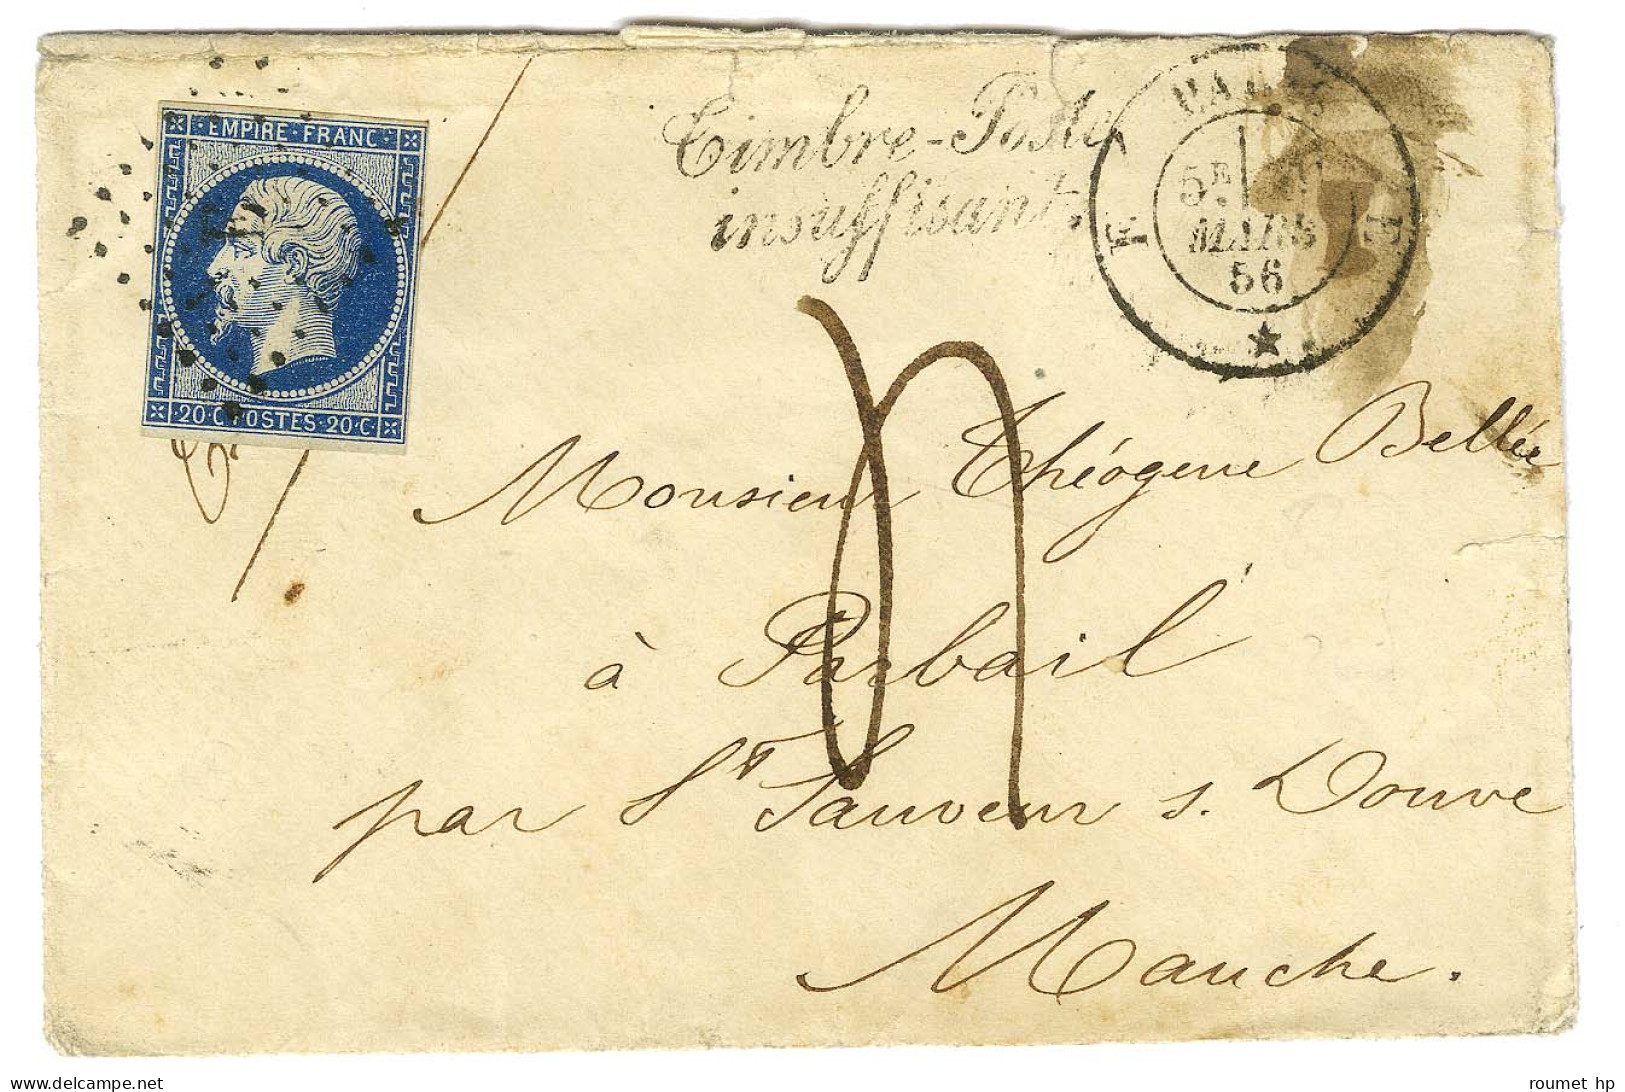 EMPIRE·FRANC·
20·C·POSTES·20·C·
Timbre-Poste
insuffisant.
PARIS
5E
MARS
56
E E
Monsieur Théogene Bellée
à Porbail
par St Sauveur s. Douve
Manche.
roumet hp